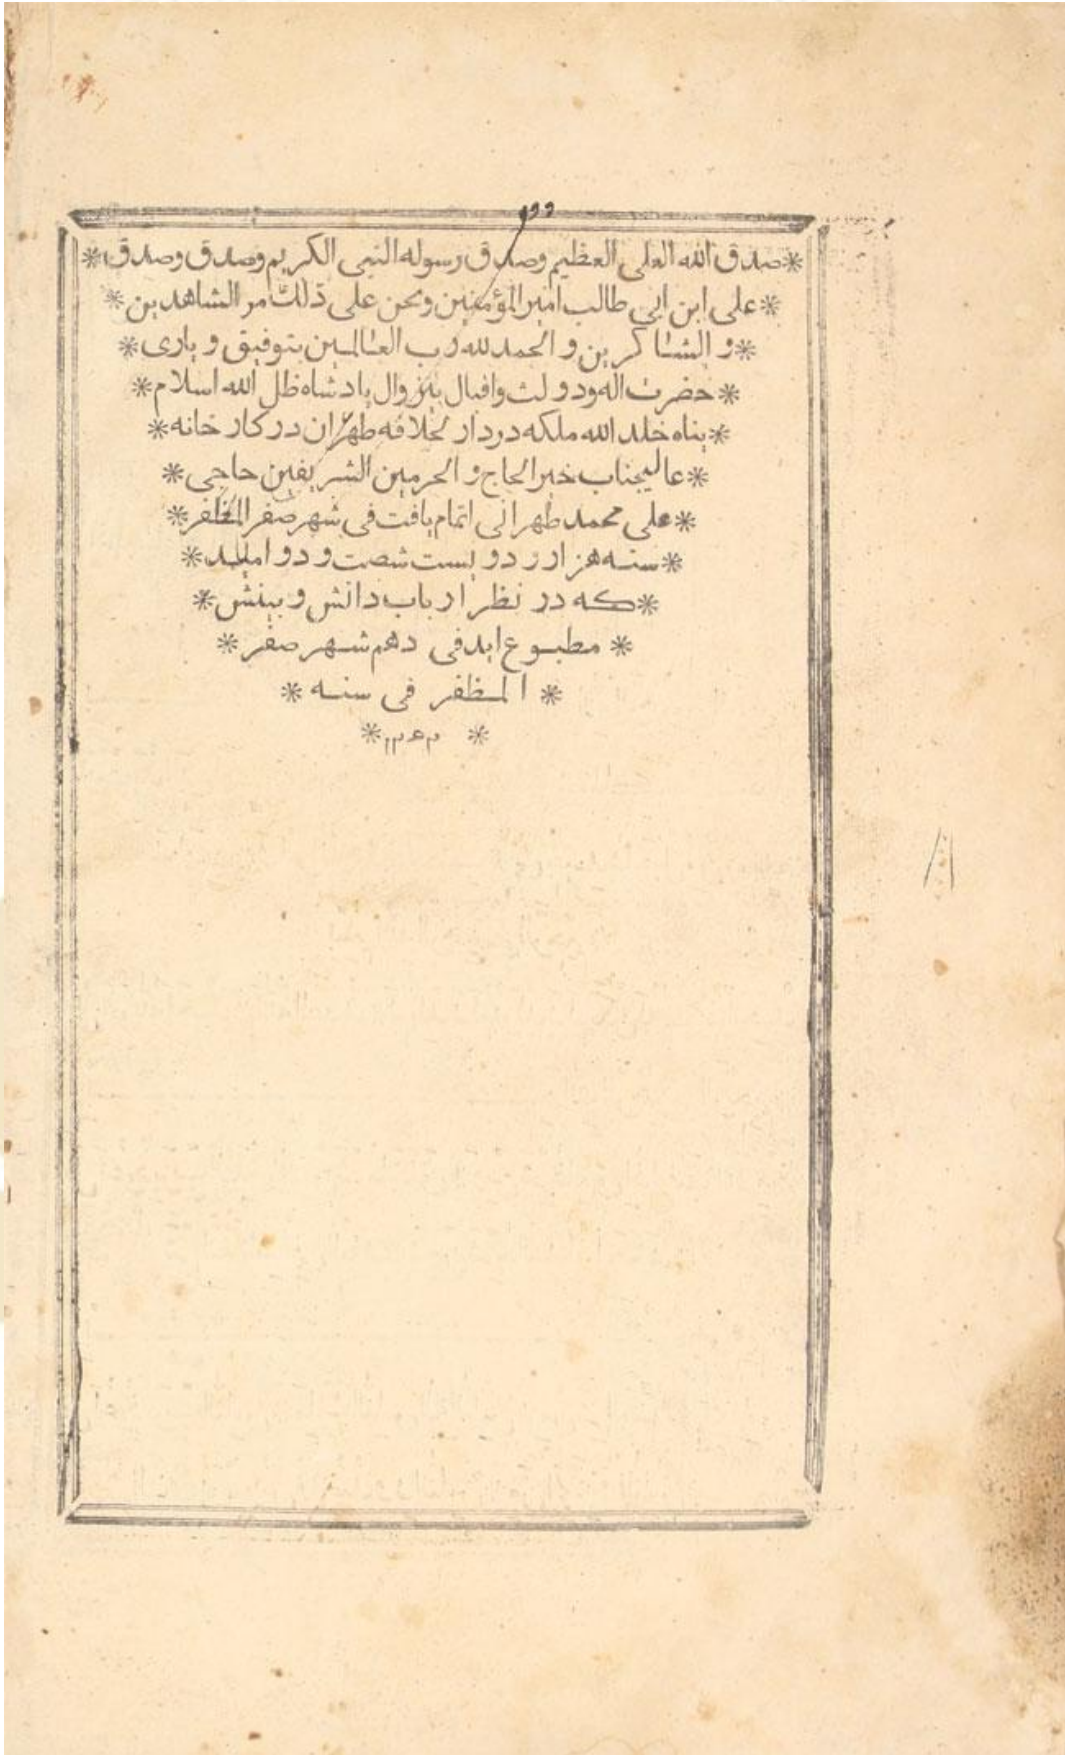 *صدق الله العلی العظیم وصدق رسوله النبی الکریم وصدق وصدق*
*علی ابن ابی طالب امیر المؤمنین ونحن علی ذلک من الشاهدین*
*و الشاکرین و الحمد لله رب العالمین بتوفیق و یاری*
*حضرت اله ودولت واقبال بیزوال پادشاه ظل الله اسلام*
*پناه خلد الله ملکه در دار الخلافه طهران در کار خانه*
*عالیجناب خیر الحاج و الحرمین الشریفین حاجی*
*علی محمد طهرانی اتمام یافت فی شهر صفر المظفر*
*سنه هزار و دویست شصت و دو امید*
*که در نظر ارباب دانش و بینش*
* مطبوع اید فی دهم شهر صفر *
* المظفر فی سنه *